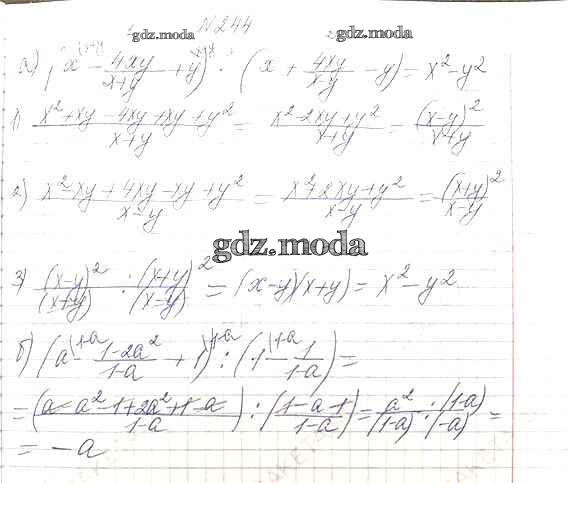 №244
gdz.moda gdz.moda
а) (x - 4xy/(x+y) + y) · (x + 4xy/(x-y) - y) = x² - y²
1) (x² + xy - 4xy + xy + y²)/(x+y) = (x² - 2xy + y²)/(x+y) = (x-y)²/(x+y)
2) (x² - xy + 4xy - xy + y²)/(x-y) = (x² + 2xy + y²)/(x-y) = (x+y)²/(x-y)
gdz.moda
3) (x-y)²/(x+y) · (x+y)²/(x-y) = (x-y)(x+y) = x² - y²
б) (a - (1-2a²)/(1-a) + 1) : (1 - 1/(1-a)) =
= ((a - a² - 1 + 2a² + 1 - a)/(1-a)) : ((1-a-1)/(1-a)) = a² · (1-a)/(1-a) · (-a) =
= -a